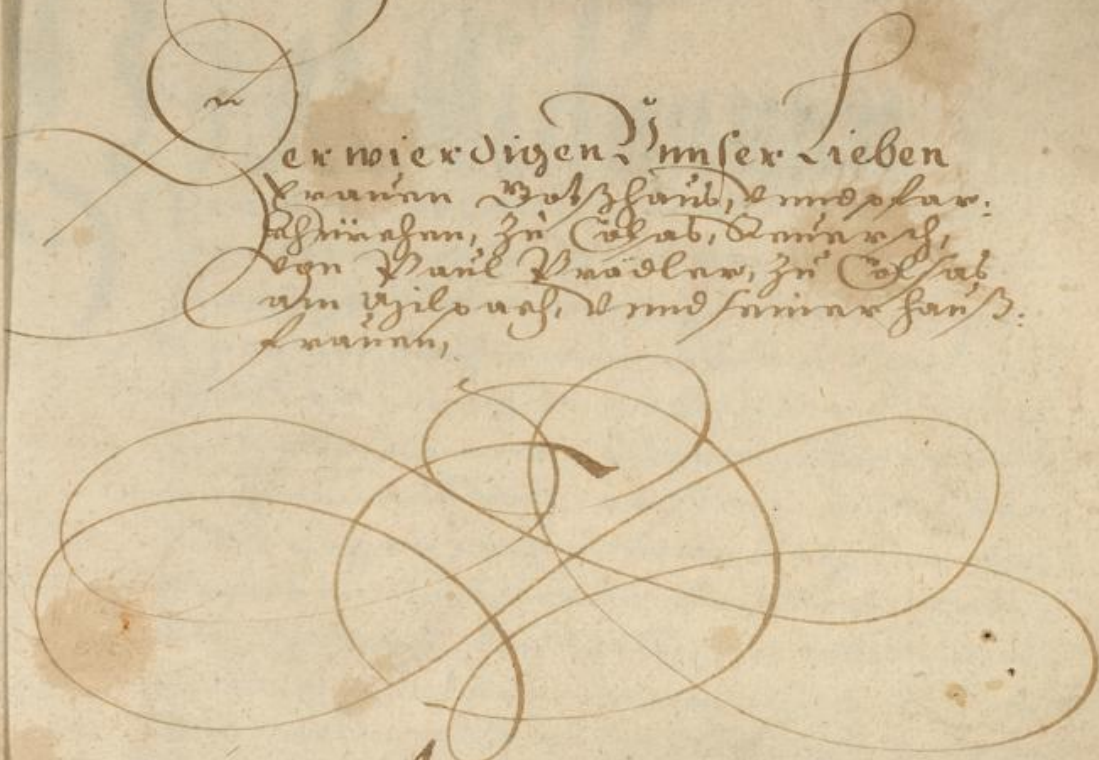 Der wierdigen Vnnser Lieben
Frauen Gotßhaus, vnnd pfar:
khürchen, zu Colsas, Reuersch,
von Paul Prädler, zu Colsas
am Milpach, vnnd seiner hauß:
frauen,